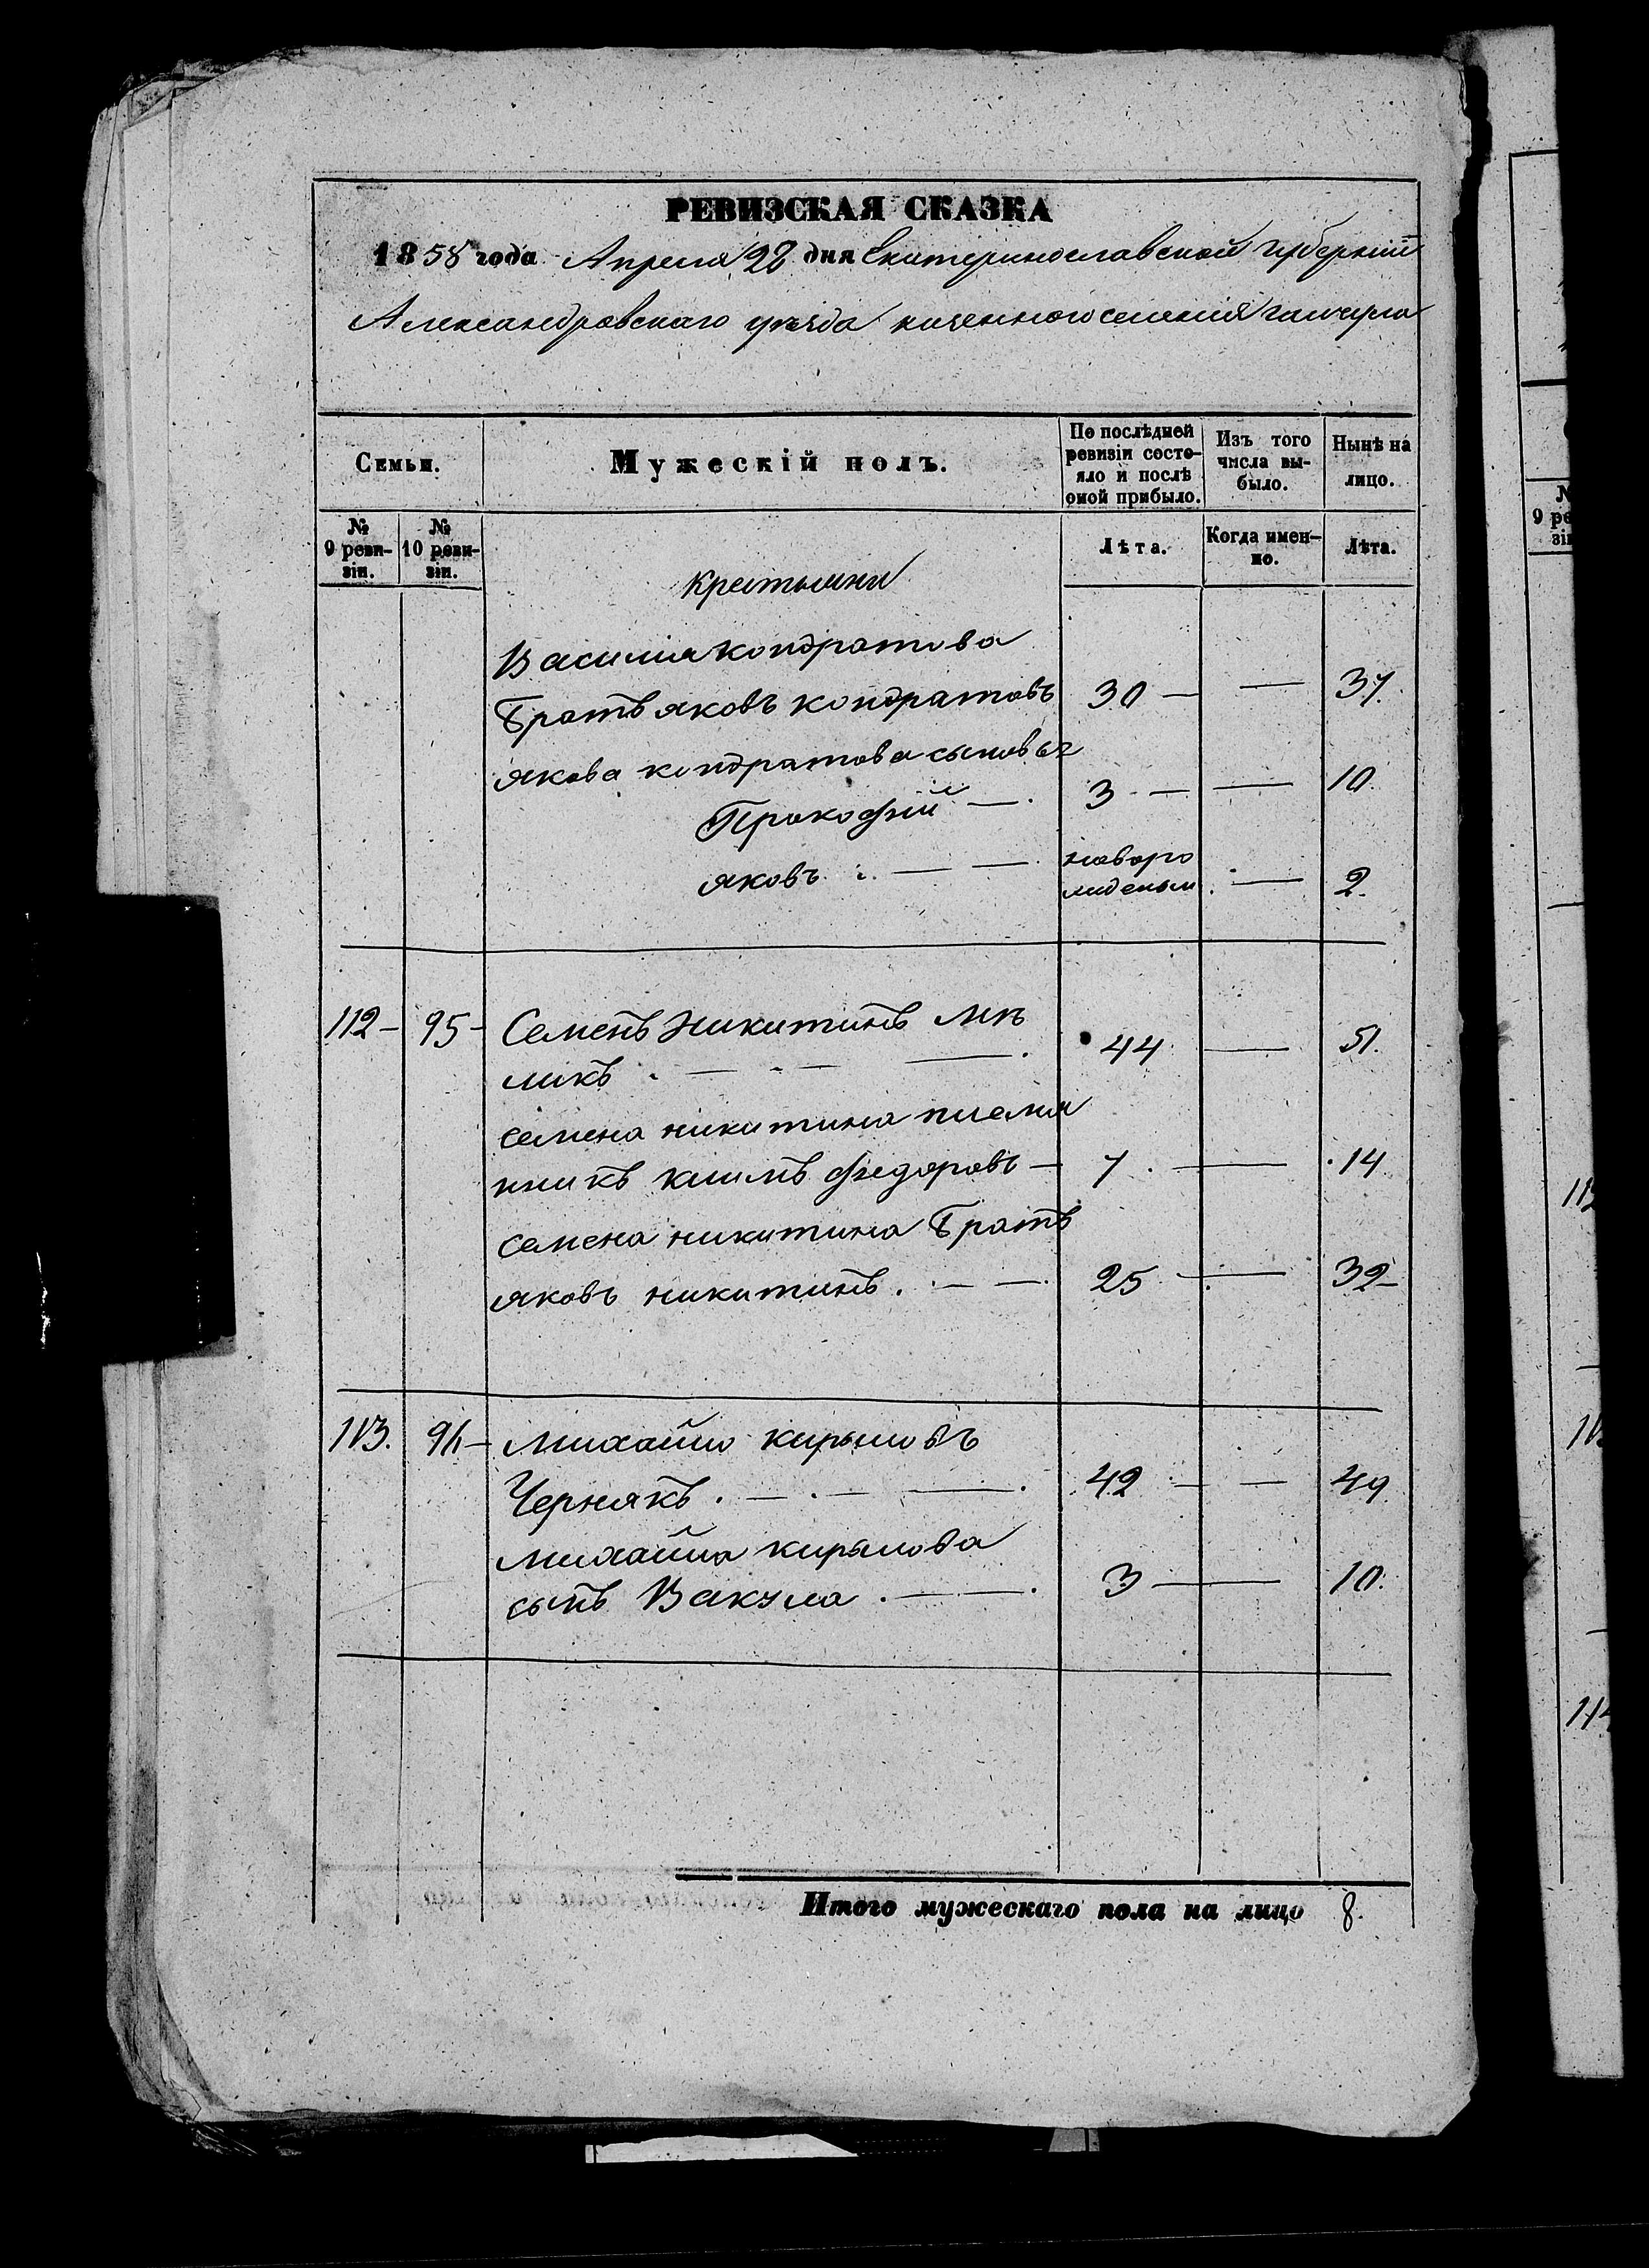 РЕВИЗСКАЯ СКАЗКА
1858 года Апреля 22 дня Екатеринославской губерніи
Александровскаго уезда казенного селенія гайчула
Семьи.
Мужескій полъ.
По послѣдней ревизіи состояло и послѣ оной прибыло.
Изъ того числа выбыло.
Нынѣ на лицо.
№ 9 ревизіи.
№ 10 ревизіи.
Лѣта.
Когда именно.
Лѣта.
крестьяни
Василія кондратова
Братъ яковъ кондратовъ 30 — — 37.
якова кондратова сыновья
Прокофий — . 3 — — 10.
яковъ . — — . новорожденым . — 2.
112 — 95 — Семенъ Никитинъ Мѣ
ликъ . — - — — . 44 — 51.
семена никитина племя
нникъ климъ федоровъ — 7 . — . 14
семена никитина Братъ
яковъ никитинъ . — — . 25 — 32 —
113. 96 — михайло кирыловъ
Чернякъ . — . — — . 42 — — 49.
михайла кирылова
сынъ Вакула . — — . 3 — — 10.
Итого мужескаго пола на лицо 8.
9 реви
зіи
113
114